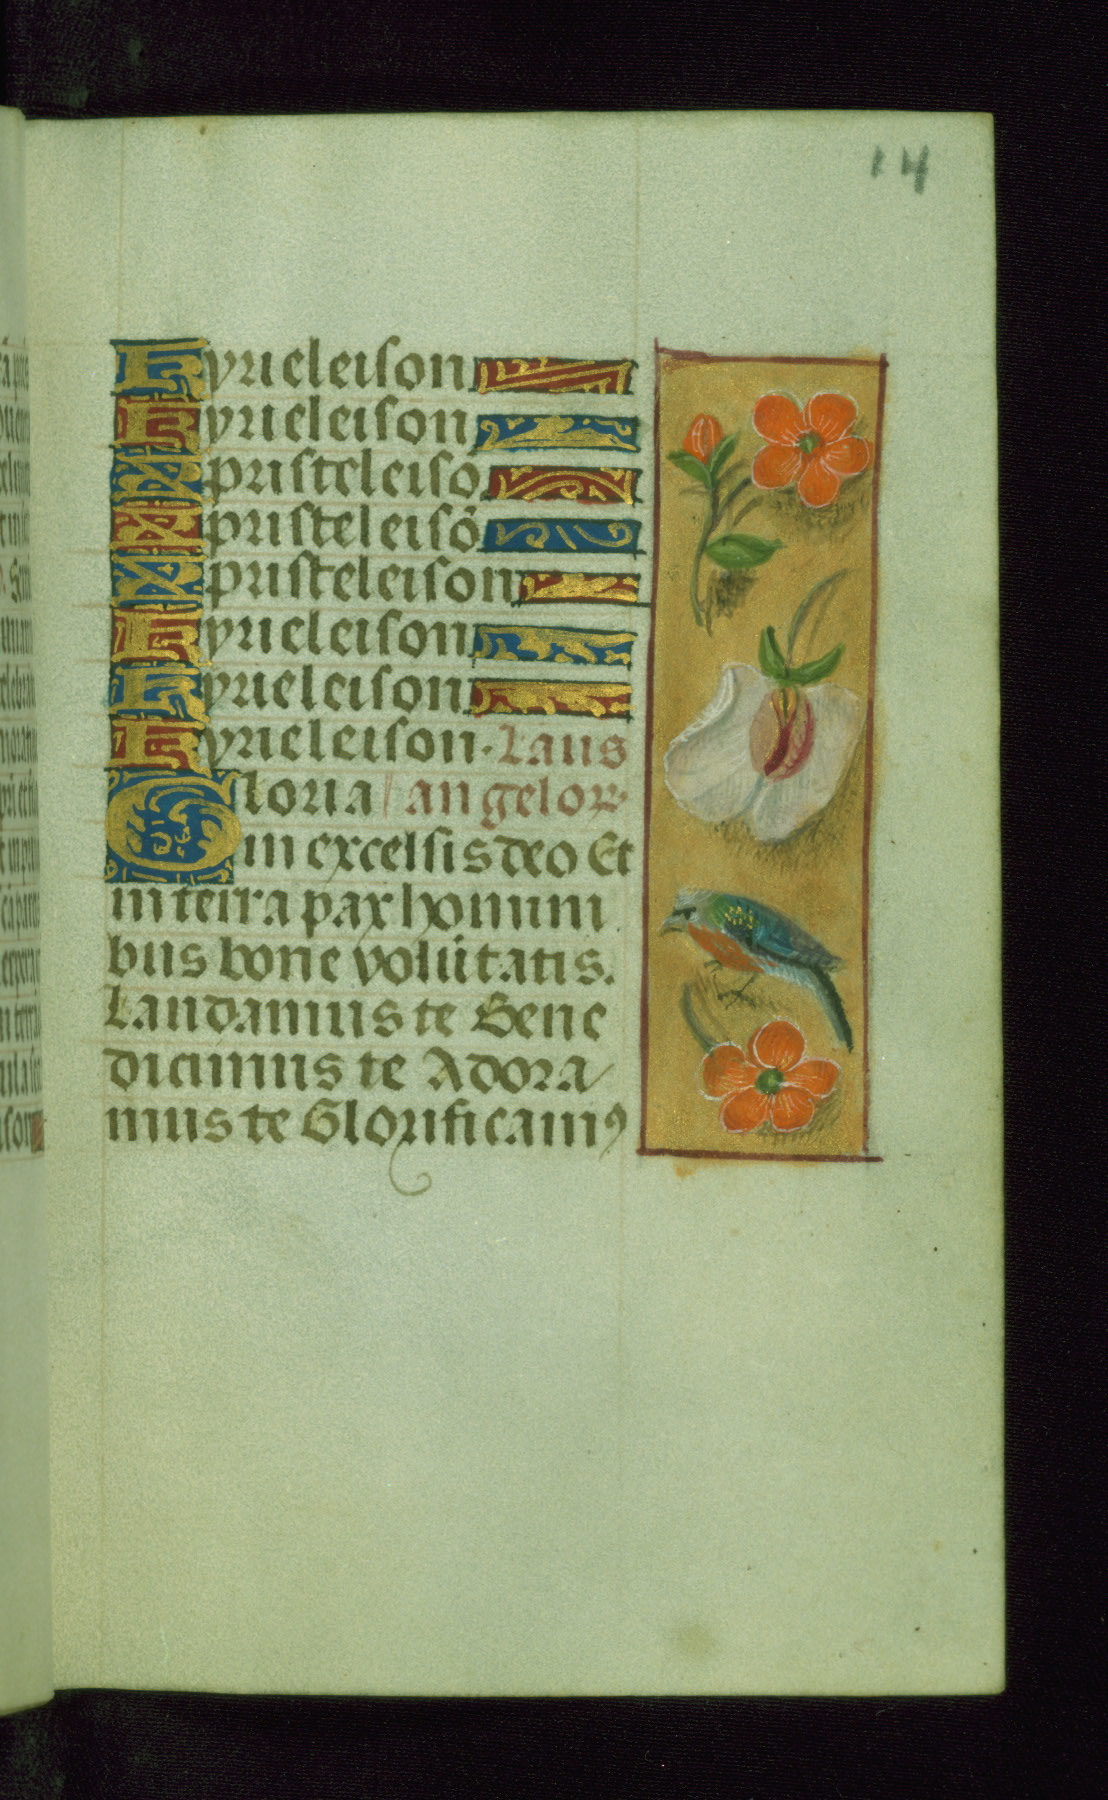 14
Kyrieleison
Kyrieleison
Xpristeleisō
Xpristeleisō
Xpristeleison
Kyrieleison
Kyrieleison
Kyrieleison. Laus
Gloria angeloꝝ
in excelsis deo Et
in terra pax homini
bus bone volūtatis.
Laudamus te Bene
dicimus te Adora
mus te Glorificamꝰ